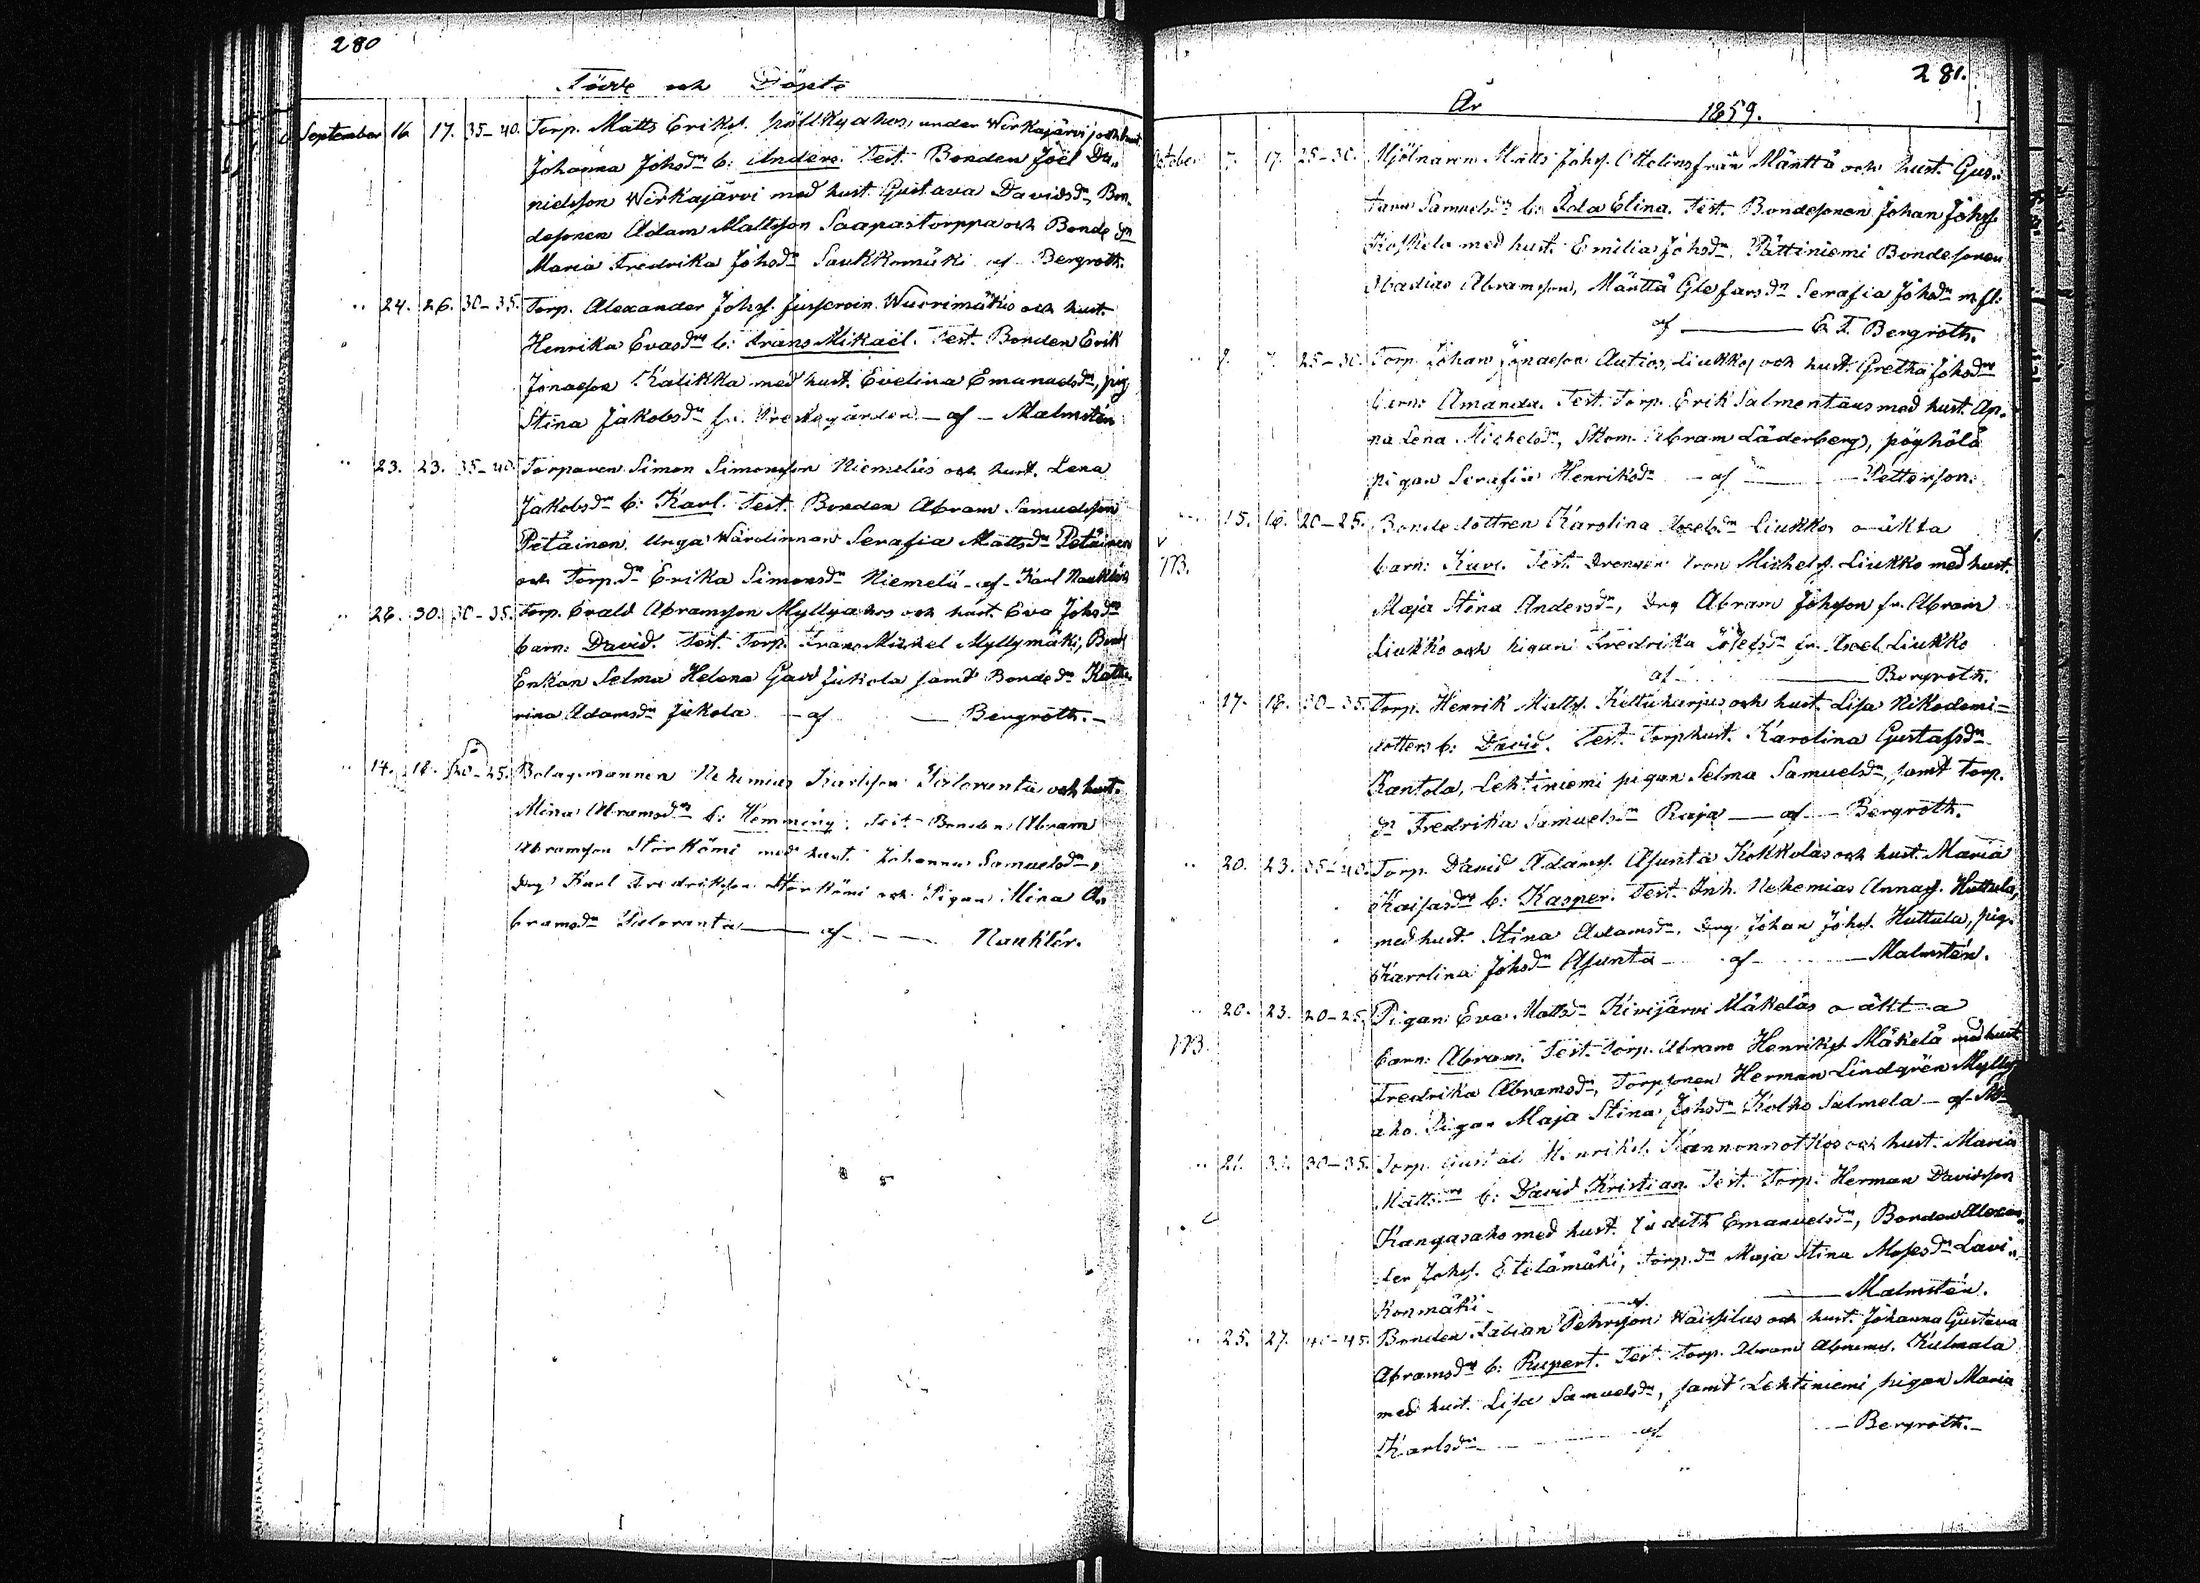 280
Födde och Döpte
September 16 17. 35-40. Torp. Matts Eriks. pöllkyahos, under Wirkajärvi och hust.
Johanna Johsdr b: Anders. Test. Bonden Joel Da„
nielsson Wirkajärvi med hust. Gustava Davidsdr, Bon„
desonen Adam Mattsson Saapastorppa och Bonde dr
Maria Fredrika Johsdr Saukkomäki af Bergroth.
„ 24. 26. 30-35. Torp. Alexander Johs. Wuorimäkis och hust.
Henrika Evasdr b: Frans Mikaël. Test. Bonden Erik
Jonasson Kalikka med hust. Evelina Emanuelsdr, pig.
Stina Jakobsdr fr. - af - Malmstén
„ 23. 23. 35-40. Torparen Simon Simonsson Niemeläs och hust. Lena
Jakobsdr b: Karl. Test. Bonden Abram Samuelsson
Petäinen. Unga Wärdinnan Serafia Mattsdr Petäinen
och Torp.dr Erika Simonsdr Niemelä - af - Karl Nauklér
„ 26. 30. 30-35. Torp. Evald Abramsson Myllyahos och hust. Eva Johsdr
barn: David. Test. Torp. Frans Mickel Myllymäki, Bond
Enkan Selma Helena Jukola samt Bonde dr Katha
rina Adamsdr Jukola - af - Bergroth. -
„ 14. 18. 20-25. Bolagsmannen Nehemias Karlsson och hust.
Mina Abramsdr b: Hemming. Test. Bonden Abram
Abramsson Storkämi med hust. Johanna Samuelsdr,
drg Karl Fredriksson Storkämi och Pigan Mina A„
bramsdr - af - Nauklér.
281.
År 1859.
October 7. 17. 25-30. Mjölnaren Matts Johs. från Mänttä och hust. Gus„
tava Samuelsdr b: Ida Elina. Test. Bondesonen Johan Johss.
Koskela med hust. Emilia Johsdr. Pättiniemi Bondesonen
Obadias Abramsson, Mänttä Serafia Johsdr
af - E. F. Bergroth.
„ 7. 25-30. Torp. Johan Jonasson Autios, Liukko, och hust. Gretha Johsdr
barn: Amanda. Test. Torp. Erik Salmentaus med hust. An„
na Lena Michelsdr, Skom. Abram Läderberg, pöyhölä
pigan Serafia Henriksdr - af - Petterson.
„ 15. 16. 20-25. Bondedottren Karolina Liukkos oäkta
NB. barn: Karl. Test. Drengen Michels. Liukko med hust.
Maja Stina Andersdr, drg Abram Johsson fr. Abram
Liukko och pigan Fredrika fr. Liukko
af - Bergroth.
„ 17. 18. 30-35. Torp. Henrik Matts. Kettuharjus och hust. Lisa Nikodemi=
dotters b: David. Test. Torphust. Karolina Gustafsdr
Kantola, Lehtiniemi pigan Selma Samuelsdr, samt torp.
dr Fredrika Samuelsdr Raja - af - Bergroth.
„ 20. 23. 35-40. Torp. David Adams. Asunta Kokkolas och hust. Maria
Kaisasdr b: Kasper. Test. Inh. Nehemias Annas. Huttula,
med hust. Stina Adamsdr, drg. Johan Johs. Huttula, pig.
Karolina Johsdr Asunta - af - Malmstén.
„ 20. 23. 20-25. Pigan Eva Mattsdr Kivijärvi Mäkeläs oäkta
NB. barn: Abram. Test. Torp. Abram Henriks. Mäkelä med hust.
Fredrika Abramsdr, Torpsonen Herman Lindgrén Mylly
aho. Pigan Maja Stina Johsdr Kolho Salmela - af
„ 21. 30-35. Torp. Gustaf Henriks. Kannonnotkos och hust. Maria
Mattsdr b: David Kristian. Test. Torp. Herman Davidsson
Kangasaho med hust. Judith Emanuelsdr, Bonden Alexan„
der Johs. Etelämäki, torp.dr Maja Stina Mosesdr Lavi„
konmäki - af - Malmstén.
„ 25. 27. 40-45. Bonden Fabian Pehrsson Waissilas och hust. Johanna Gustava
Abramsdr b: Rupert. Test. Torp. Abram Abrams. Kulmala
med hust. Lisa Samuelsdr, samt Lehtiniemi pigan Maria
Karlsdr - af - Bergroth. -